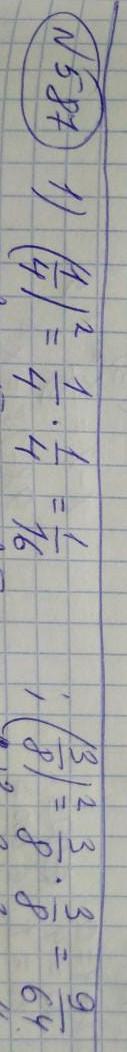 N587
1) (1/4)² = 1/4 · 1/4 = 1/16 , (3/8)² = 3/8 · 3/8 = 9/64